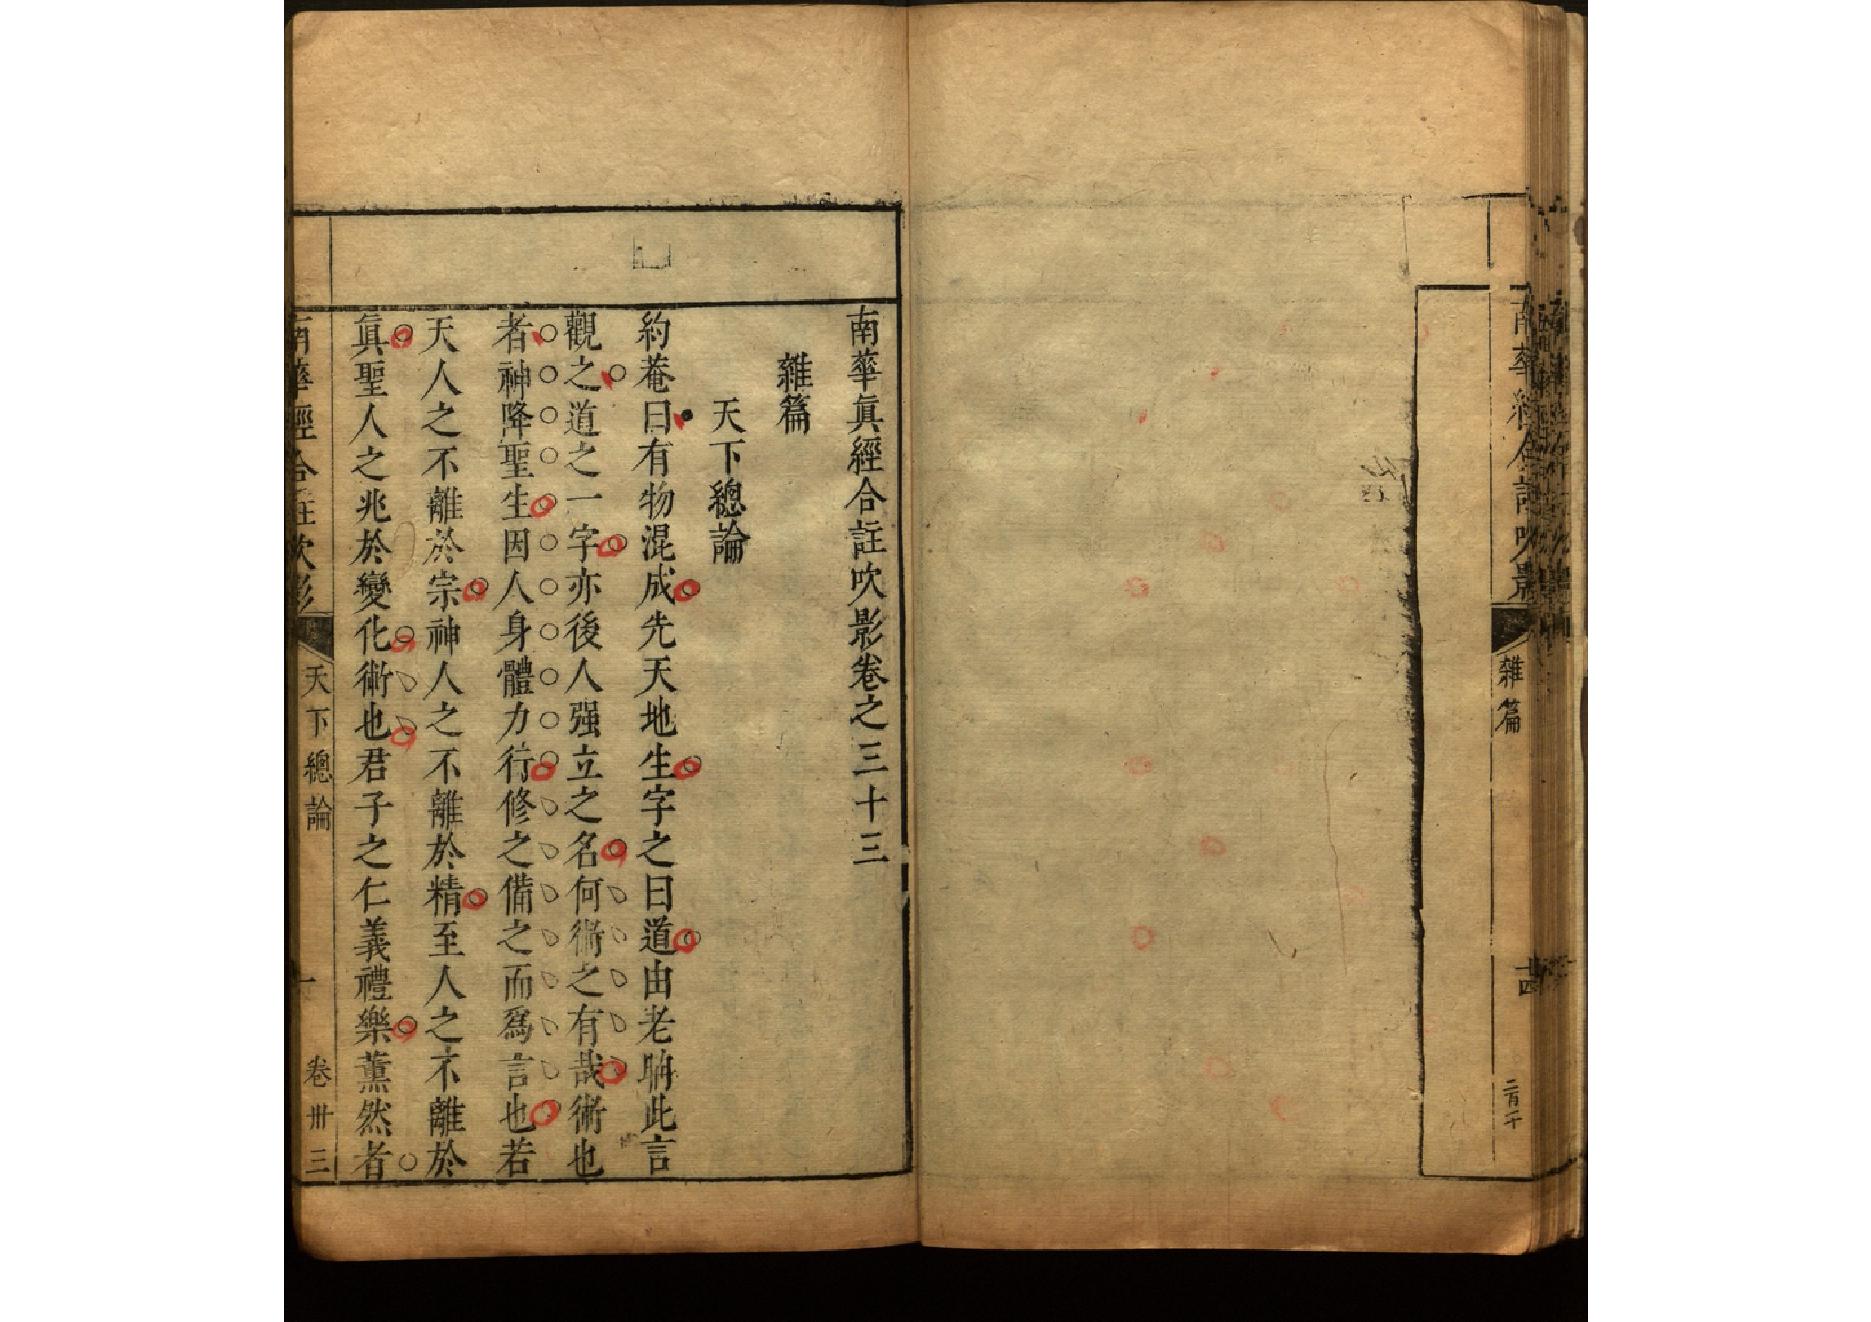 南華經合註吹影
雜篇
十四
南華眞經合註吹影卷之三十三
雜篇
天下總論
約菴曰有物混成先天地生字之曰道由老聃此言
觀之道之一字亦後人强立之名何術之有哉術也
者神降聖生因人身體力行修之備之而爲言也若
天人之不離於宗神人之不離於精至人之不離於
眞聖人之兆於變化術也君子之仁義禮樂薰然者
南華經合註吹影
天下總論
一
卷卅三